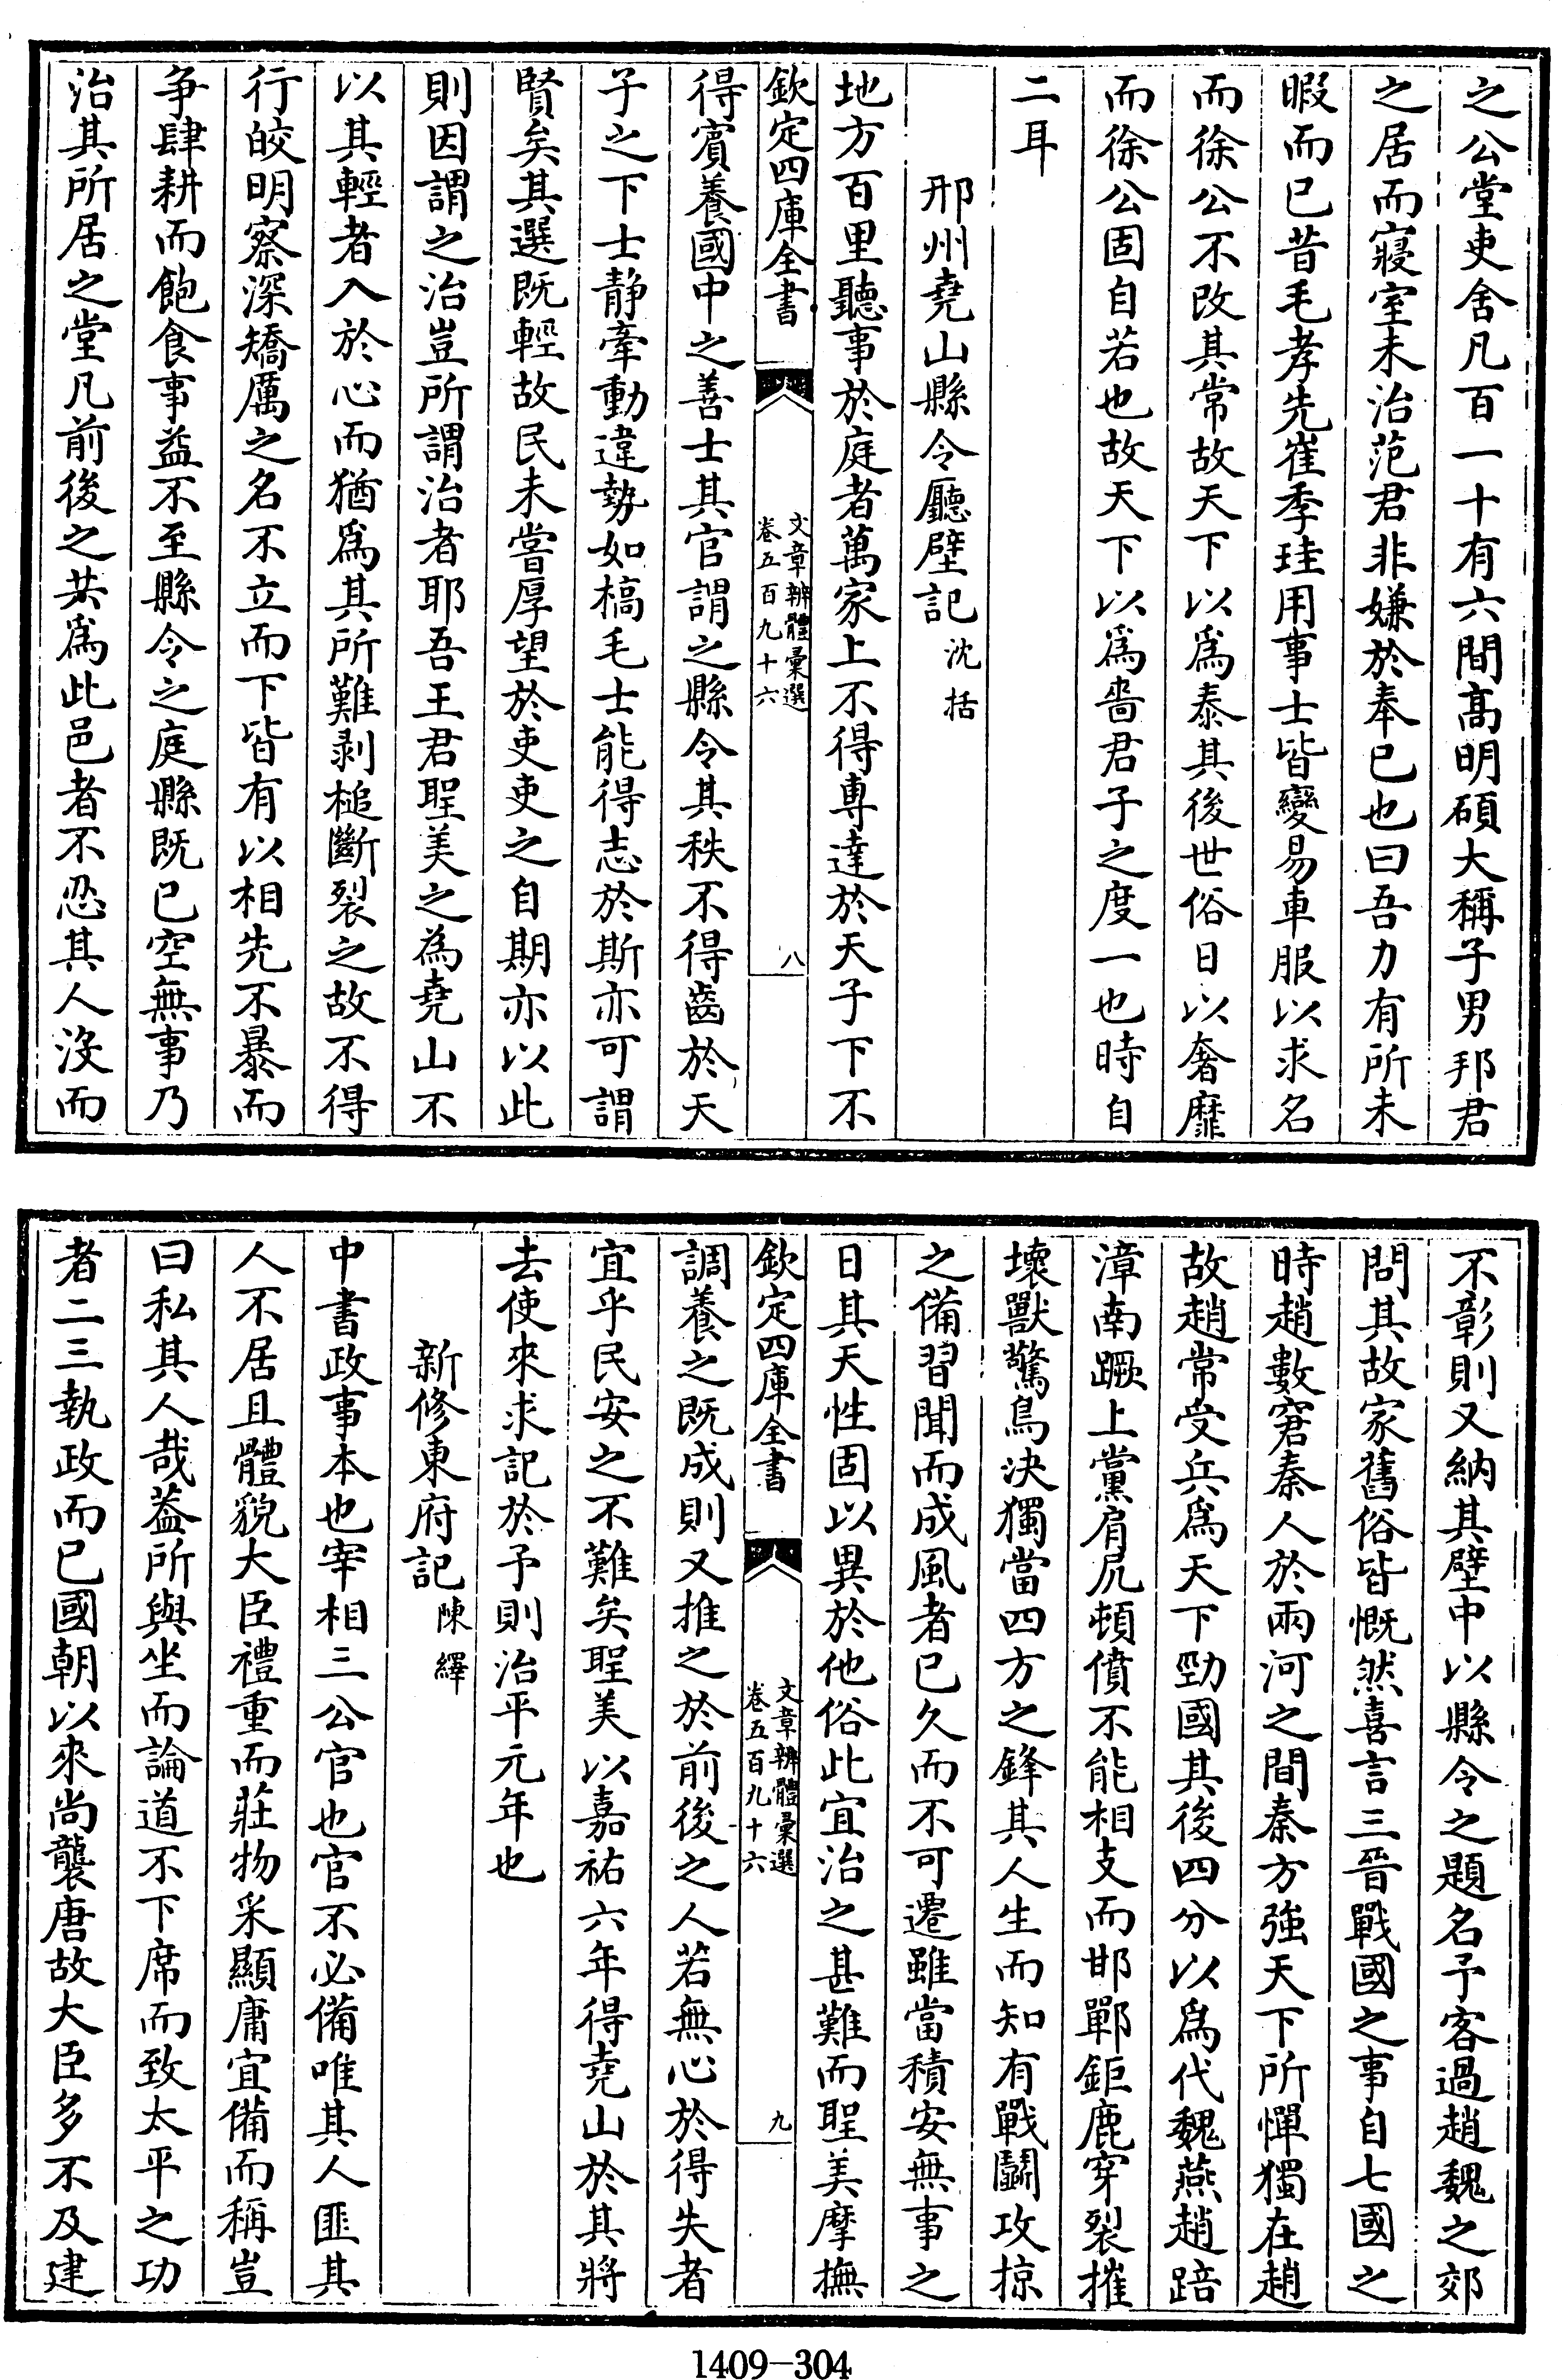 之公堂吏舍凡百一十有六間髙明碩大稱子男邦君
之居而寢室未治范君非嫌於奉已也曰吾力有所未
暇而已昔毛孝先崔季珪用事士皆變易車服以求名
而徐公不改其常故天下以爲泰其後世俗日以奢靡
而徐公固自若也故天下以爲嗇君子之度一也時自
二耳
邢州堯山縣令廳壁記 沈括
地方百里聽事於庭者萬家上不得專達於天子下不
欽定四庫全書
文章辨體彙選
卷五百九十六
八
得賓養國中之善士其官謂之縣令其秩不得齒於天
子之下士靜牽動違勢如槁毛士能得志於斯亦可謂
賢矣其選既輕故民未嘗厚望於吏吏之自期亦以此
則因謂之治豈所謂治者耶吾王君聖美之為堯山不
以其輕者入於心而猶爲其所難剥槌斷裂之故不得
行皎明察深矯厲之名不立而下皆有以相先不暴而
爭肆耕而飽食事益不至縣令之庭縣既已空無事乃
治其所居之堂凡前後之共爲此邑者不忍其人沒而
不彰則又納其壁中以縣令之題名予客過趙魏之郊
問其故家舊俗皆慨然喜言三晉戰國之事自七國之
時趙數窘秦人於兩河之間秦方強天下所憚獨在趙
故趙常受兵爲天下勁國其後四分以爲代魏燕趙踣
漳南蹶上黨肩尻頓僨不能相支而邯鄲鉅鹿穿裂摧
壞獸驚鳥決獨當四方之鋒其人生而知有戰鬭攻掠
之備習聞而成風者已久而不可遷雖當積安無事之
日其天性固以異於他俗此宜治之甚難而聖美摩撫
欽定四庫全書
文章辨體彙選
卷五百九十六
九
調養之既成則又推之於前後之人若無心於得失者
宜乎民安之不難矣聖美以嘉祐六年得堯山於其將
去使來求記於予則治平元年也
新修東府記 陳繹
中書政事本也宰相三公官也官不必備唯其人匪其
人不居且體貌大臣禮重而莊物采顯庸宜備而稱豈
曰私其人哉葢所與坐而論道不下席而致太平之功
者二三執政而已國朝以來尚襲唐故大臣多不及建
1409-304